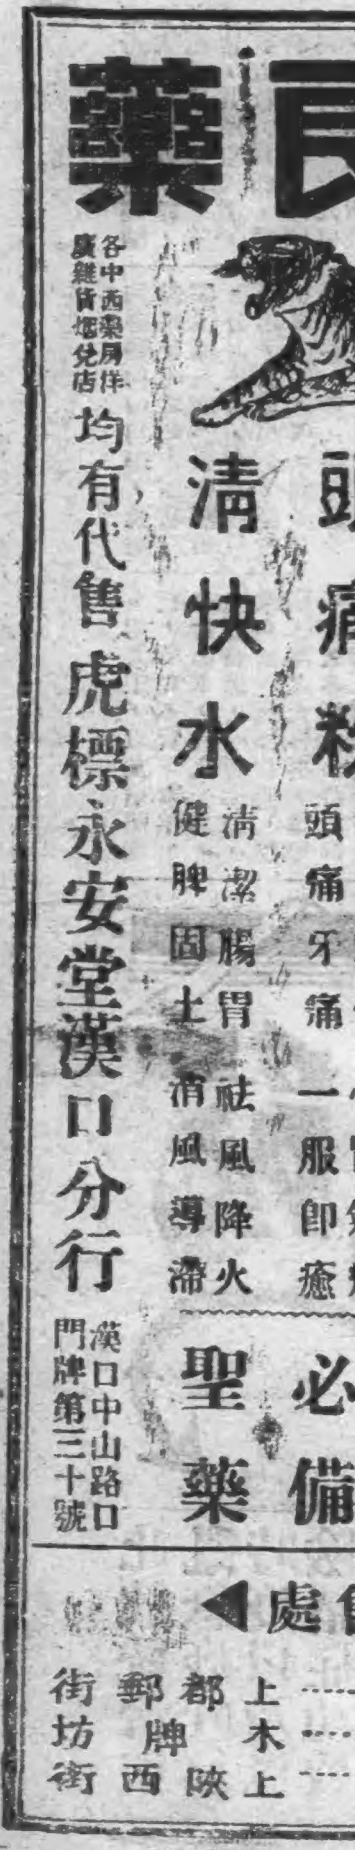 良藥
頭痛粉
頭痛牙痛 一服即癒
清快水
清潔腸胃 祛風降火
健脾固土 消風導滯
必備
聖藥
各中西藥房洋
廣雜貨烟兌店
均有代售 虎標永安堂漢口分行
漢口中山路口
門牌第三十號
售處◀
上都郵街
木牌坊
上陝西街